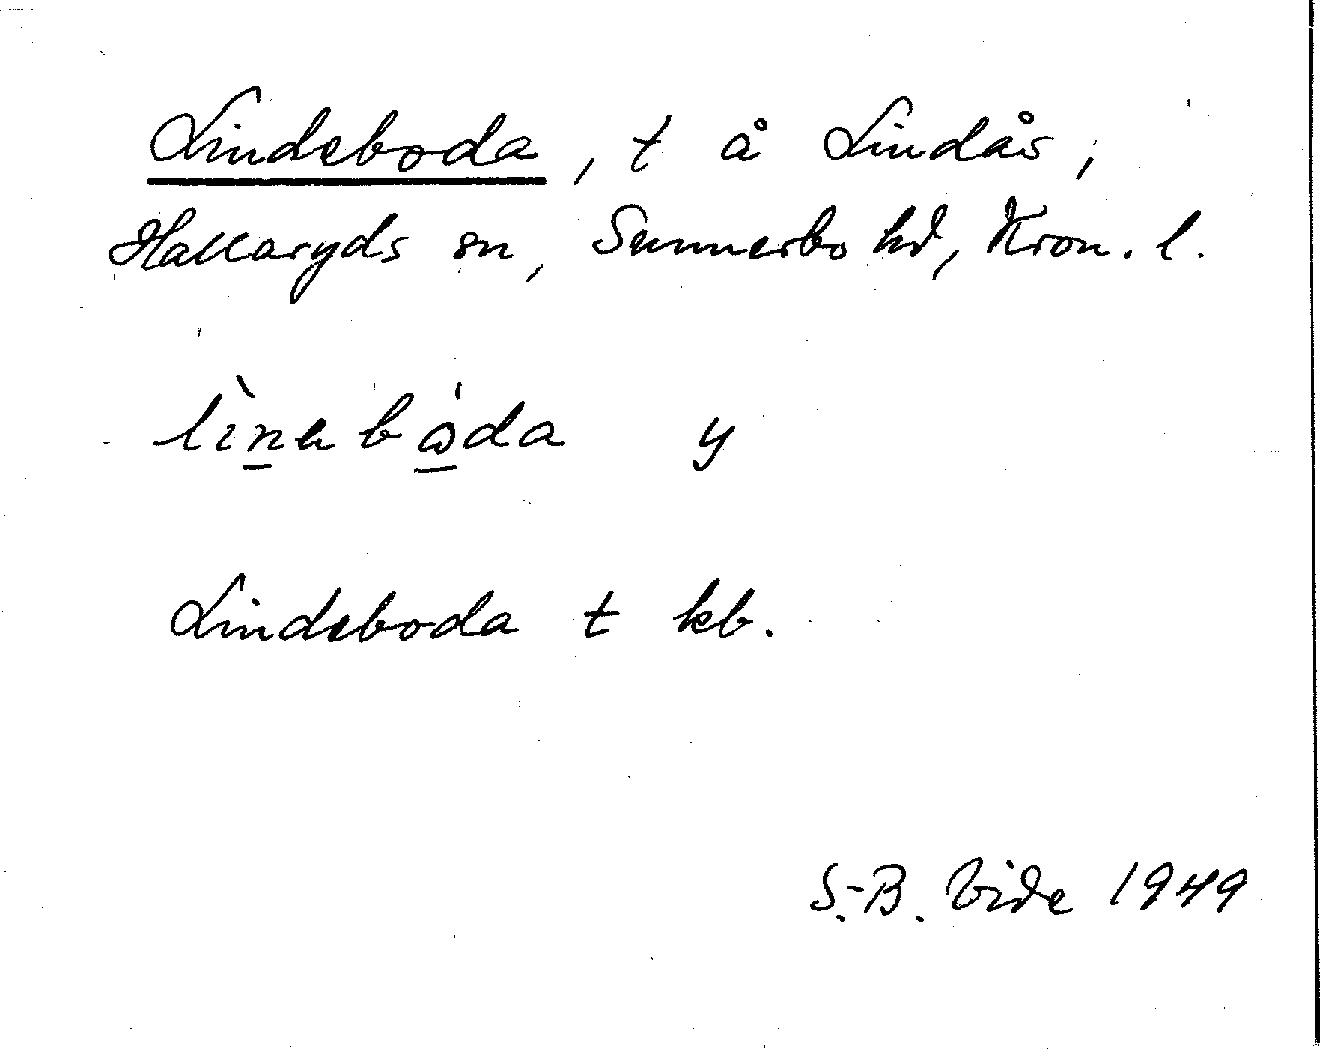 Lindeboda, t å Lindås,
Hallaryds sn, Sunnerbo hd, Kron. l.
lìnabåda y
Lindeboda t kb.
S.-B. Vide 1949